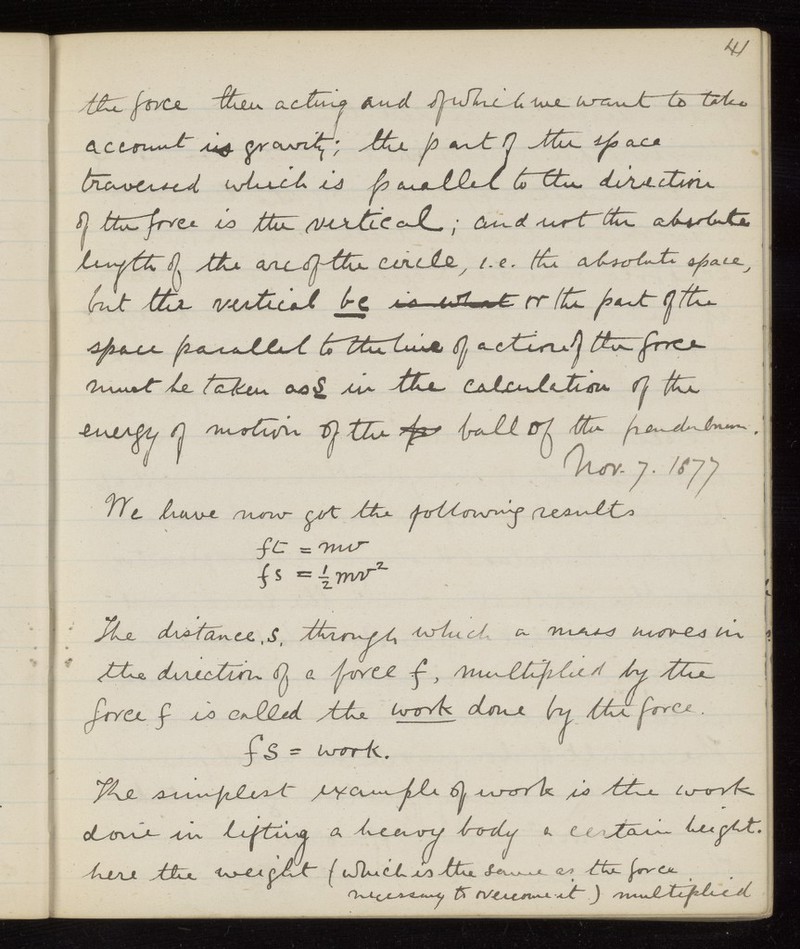 41
the force then acting and of which we want to take
account is gravity; the part of the space
traversed which is parallel to the direction
of the force is the vertical; and not the absolute
length of the arc of the circle, i.e. the absolute space,
but the vertical bc is what or the part of the
space parallel to the line of action of the force
must be taken as s in the calculation of the
energy of motion of the ball of the pendulum.
Nov. 7. 1877
We have now got the following results
ft = mv
fs = ½mv²
The distance, s, through which a mass moves in
the direction of a force f, multiplied by the
force f is called the work done by the force.
fs = work.
The simplest example of work is the work
done in lifting a heavy body a certain height.
here the weight (which is the same as the force
necessary to overcome it) multiplied